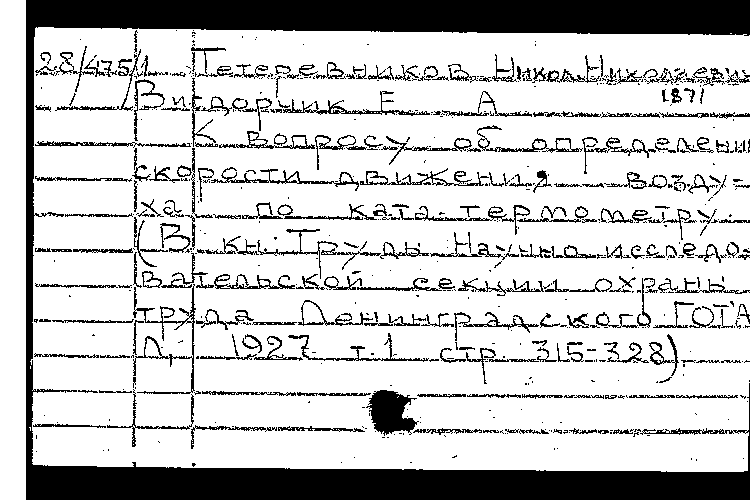 28/475/1 Тетеревников Никол. Николаевич
1871
Вигдорчик Е А
К вопросу об определении
скорости движения возду-
ха по ката-термометру.
(В кн: Труды Научно исследо-
вательской секции охраны
труда Ленинградского ГОТ'А
Л, 1927 т.1 стр. 315-328)